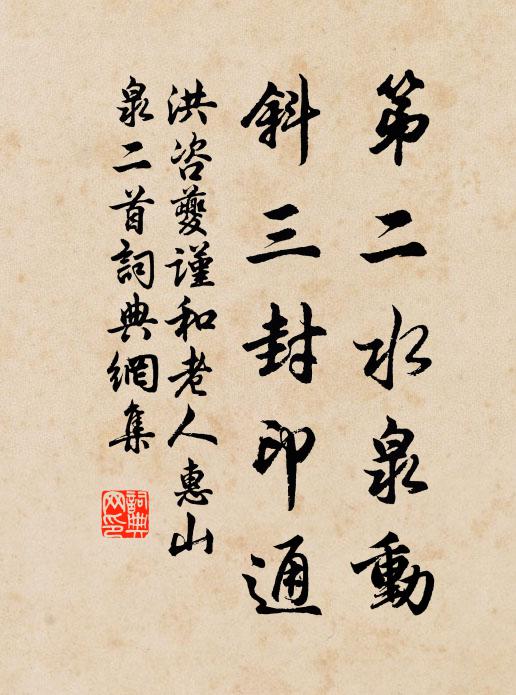 第二水泉動
斜三封印通
洪咨夔謹和老人惠山
泉二首詞典網集
詞典
网印